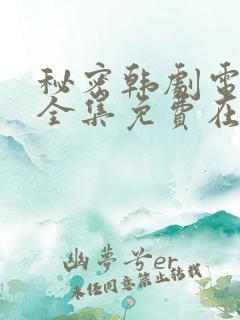 秘密韩剧電
全集免費在
幽夢兮er
未经同意禁止转载